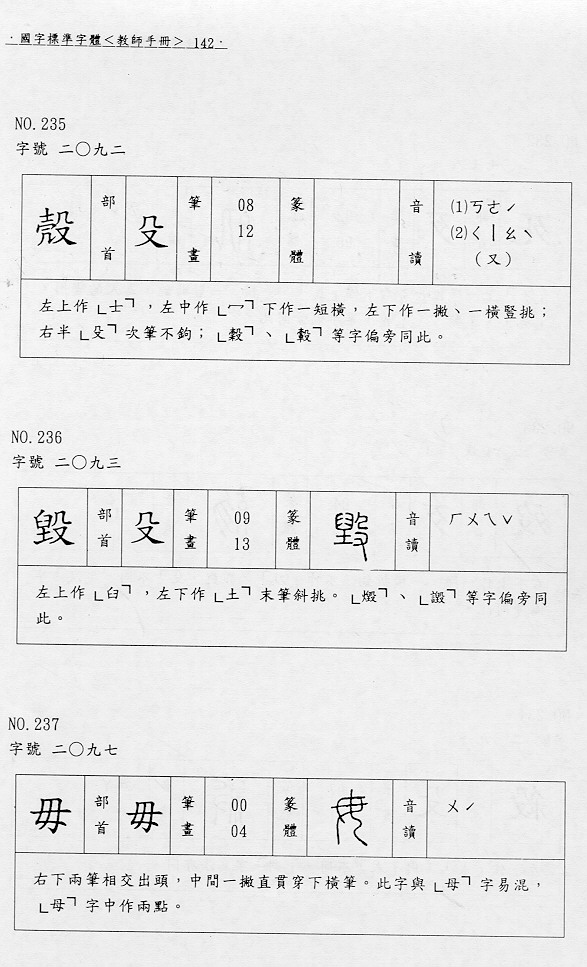 ·國字標準字體<教師手冊> 142·
NO.235
字號 二〇九二
殼 部首 殳 筆畫 08 12 篆體 音讀 ⑴ㄎㄜˊ
⑵ㄑㄧㄠˋ
(又)
左上作「士」,左中作「冖」下作一短橫,左下作一撇、一橫豎挑;
右半「殳」次筆不鉤;「穀」、「轂」等字偏旁同此。
NO.236
字號 二〇九三
毀 部首 殳 筆畫 09 13 篆體 音讀 ㄏㄨㄟˇ
左上作「臼」,左下作「土」末筆斜挑。「燬」、「譭」等字偏旁同
此。
NO.237
字號 二〇九七
毋 部首 毋 筆畫 00 04 篆體 音讀 ㄨˊ
右下兩筆相交出頭,中間一撇直貫穿下橫筆。此字與「母」字易混,
「母」字中作兩點。